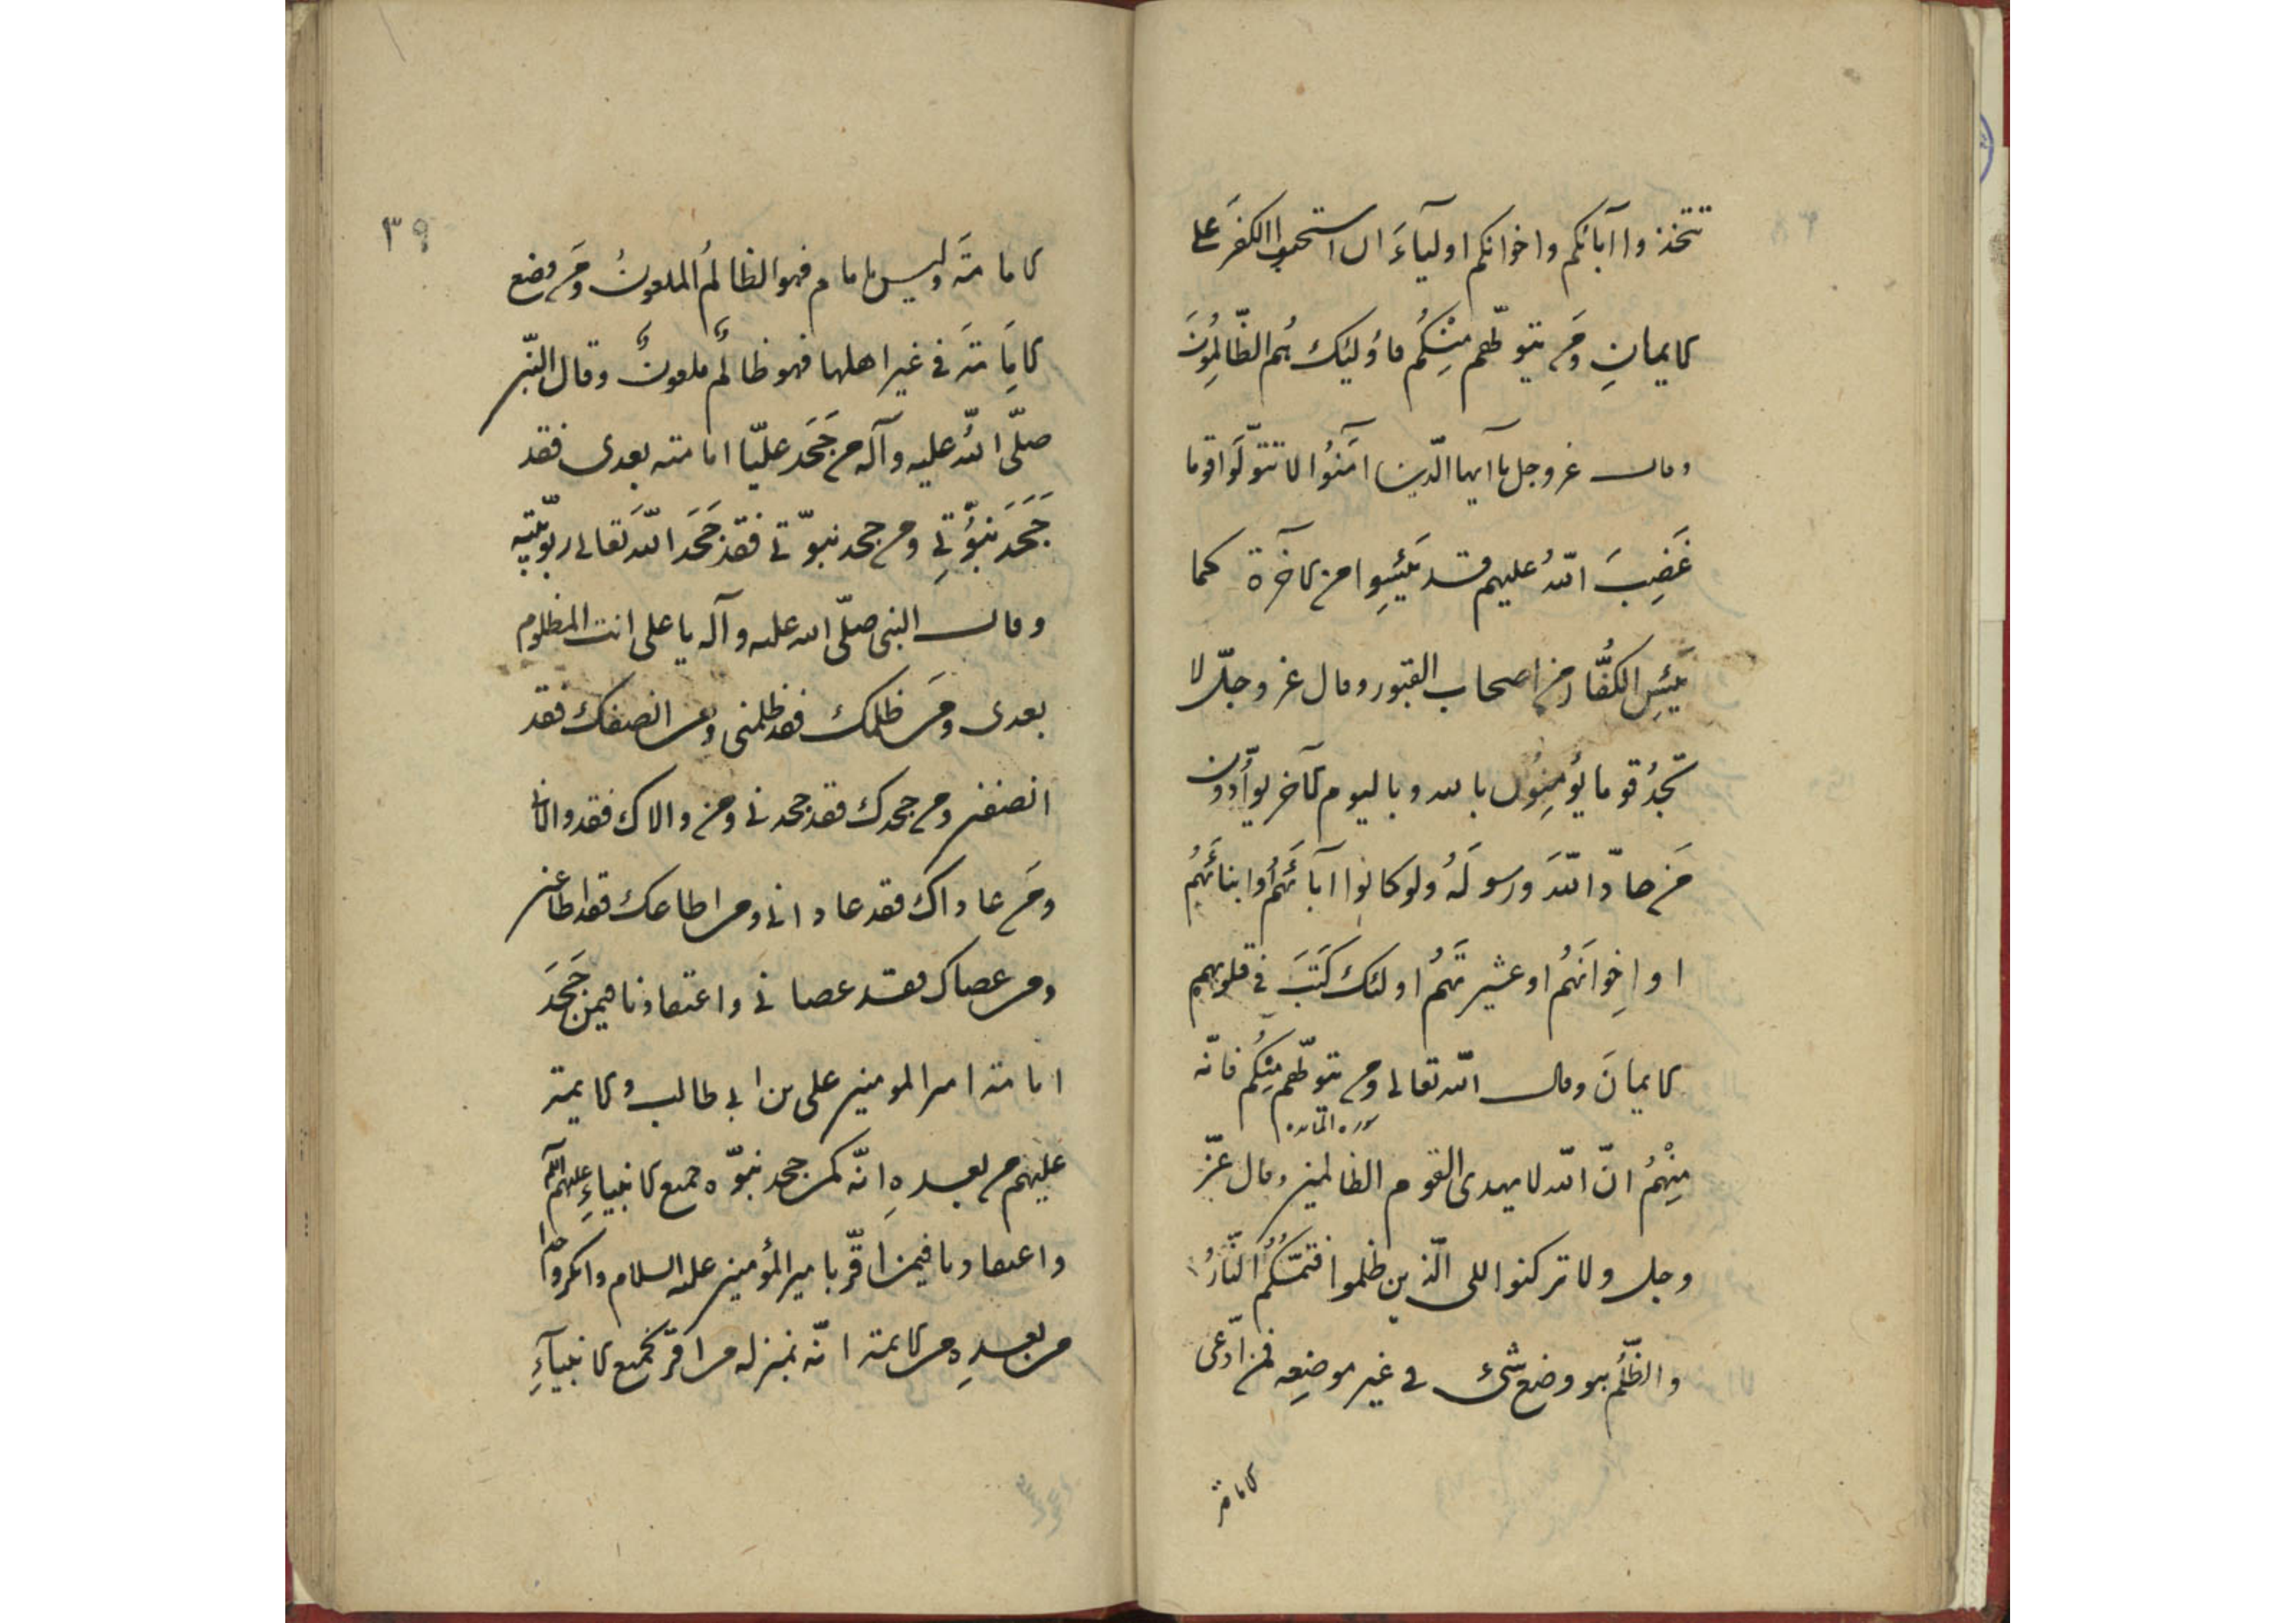 تتخذوا آبائكم واخوانكم اوليآءَ ان استحبوا الكفرَ على
الايمانِ ومَن يتولّهم مِنْكُم فاُولئِك هُم الظّالِمُونَ
وقال عزوجل يا آيها الّذين آمَنُوا لا تتولّوا قوما
غَضِبَ اللّهُ عليهم قد يَئِسِوا من الآخرة كما
يَئِسِ الكُفّار من اصحاب القبور وقال عزوجلّ لا
تَجدُ قوما يُؤمِنوُن بالله وباليوم الآخر يوآدّون
مَن حادّ اللّهَ ورسولَهُ ولو كانوا آبائَهُم وابنائَهُم
او اِخوانَهُم او عشيرتَهُم اولئك كَتَبَ في قلوبهم
الايمانَ وقال اللّه تعالى ومن يتولّهم مِنْكُم فانّه
سوره المائده
مِنْهُم انّ اللّه لا يهدى القوم الظالمين وقال عزّ
وجل ولا تركنوا اللى الّذين ظلموا فتمسّكُم النّارُ
والظّلم هو وضع شئ في غير موضِعِه فمن ادّعى
الامامة
٣٩
الامامتَه وليس بامام فهو الظالمُ الملعونُ ومَن وضع
الامِامَتَه في غير اهلها فهو ظالمٌ ملعونٌ وقال النّبى
صلّى اللّه عليه وآله من جَحَد عليّا امامته بعدى فقد
جَحَدَ نبُوّتِي ومن جحد نبوّتى فقد جَحَدَ اللّهَ تعالى ربوبيّته
وقال النبى صلّى الله عليه وآله يا على انت المظلوم
بعدى ومَن ظلمك فقد ظلمنى ومن انصفك فقد
انصفنى ومن جحدك فقد جحدنى ومن والاك فقد والانى
ومَن عاداك فقد عادانى ومن اطاعك فقد اطاعنى
ومن عصاك فقد عصانى واعتقادنا فيمن جَحَدَ
امامته امير المومنين على بن ابى طالب والايمته
عليهم من بعدهِ انّه كمن جحد نبوّه جميع الانبياءِ عليهم
واعتقادنا فيمن اَقرّ بامير المؤمنين عليه السلام وانكر واحدا
من بعدِه من الايمته انّه بمنزله من اقرّ بجميع الانبيآءِ